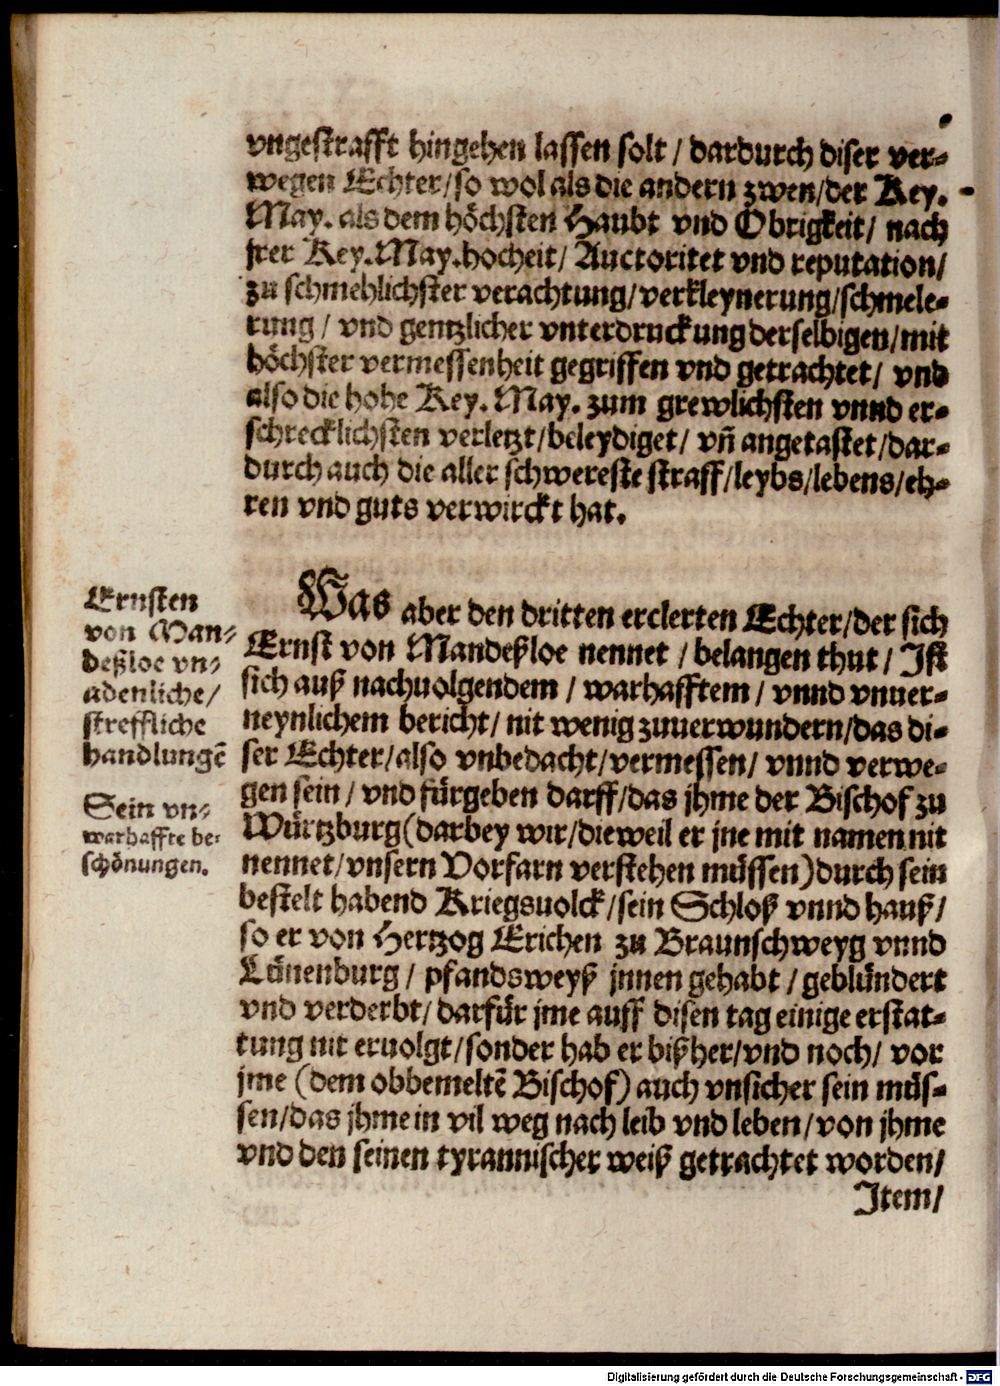 vngestrafft hingehen lassen solt / dardurch diser ver-
wegen Echter/so wol als die andern zwen/der Key.
May. als dem höchsten Haubt vnd Obrigkeit/ nach
jrer Key.May.hocheit/ Auctoritet vnd reputation/
zu schmehlichster verachtung/verkleynerung/schmele-
rung / vnd gentzlicher vnterdruckung derselbigen/mit
höchster vermessenheit gegriffen vnd getrachtet/ vnd
also die hohe Key. May. zum grewlichsten vnnd er-
schrecklichsten verletzt/beleydiget/ vñ angetastet/dar-
durch auch die aller schwereste straff/leybs/lebens/eh-
ren vnd guts verwirckt hat.
Ernsten
von Man-
deßloe vn-
adenliche/
streffliche
handlungẽ
Sein vn-
warhaffte be-
schönungen.
Was aber den dritten erclerten Echter/der sich
Ernst von Mandeßloe nennet / belangen thut / Ist
sich auß nachuolgendem / warhafftem / vnnd vnuer-
neynlichem bericht/ nit wenig zuuerwundern/das di-
ser Echter/also vnbedacht/vermessen/ vnnd verwe-
gen sein / vnd fürgeben darff/das jhme der Bischof zu
Würtzburg(darbey wir/dieweil er jne mit namen nit
nennet/vnsern Vorfarn verstehen müssen)durch sein
bestelt habend Kriegsuolck/sein Schloß vnnd hauß/
so er von Hertzog Erichen zu Braunschweyg vnnd
Lünenburg / pfandsweyß jnnen gehabt / geblündert
vnd verderbt/ darfür jme auff disen tag einige erstat-
tung nit eruolgt/sonder hab er bißher/vnd noch/ vor
jme (dem obbemeltẽ Bischof) auch vnsicher sein müs-
sen/das jhme in vil weg nach leib vnd leben/von jhme
vnd den seinen tyrannischer weiß getrachtet worden/
Item/
Digitalisierung gefördert durch die Deutsche Forschungsgemeinschaft - DFG